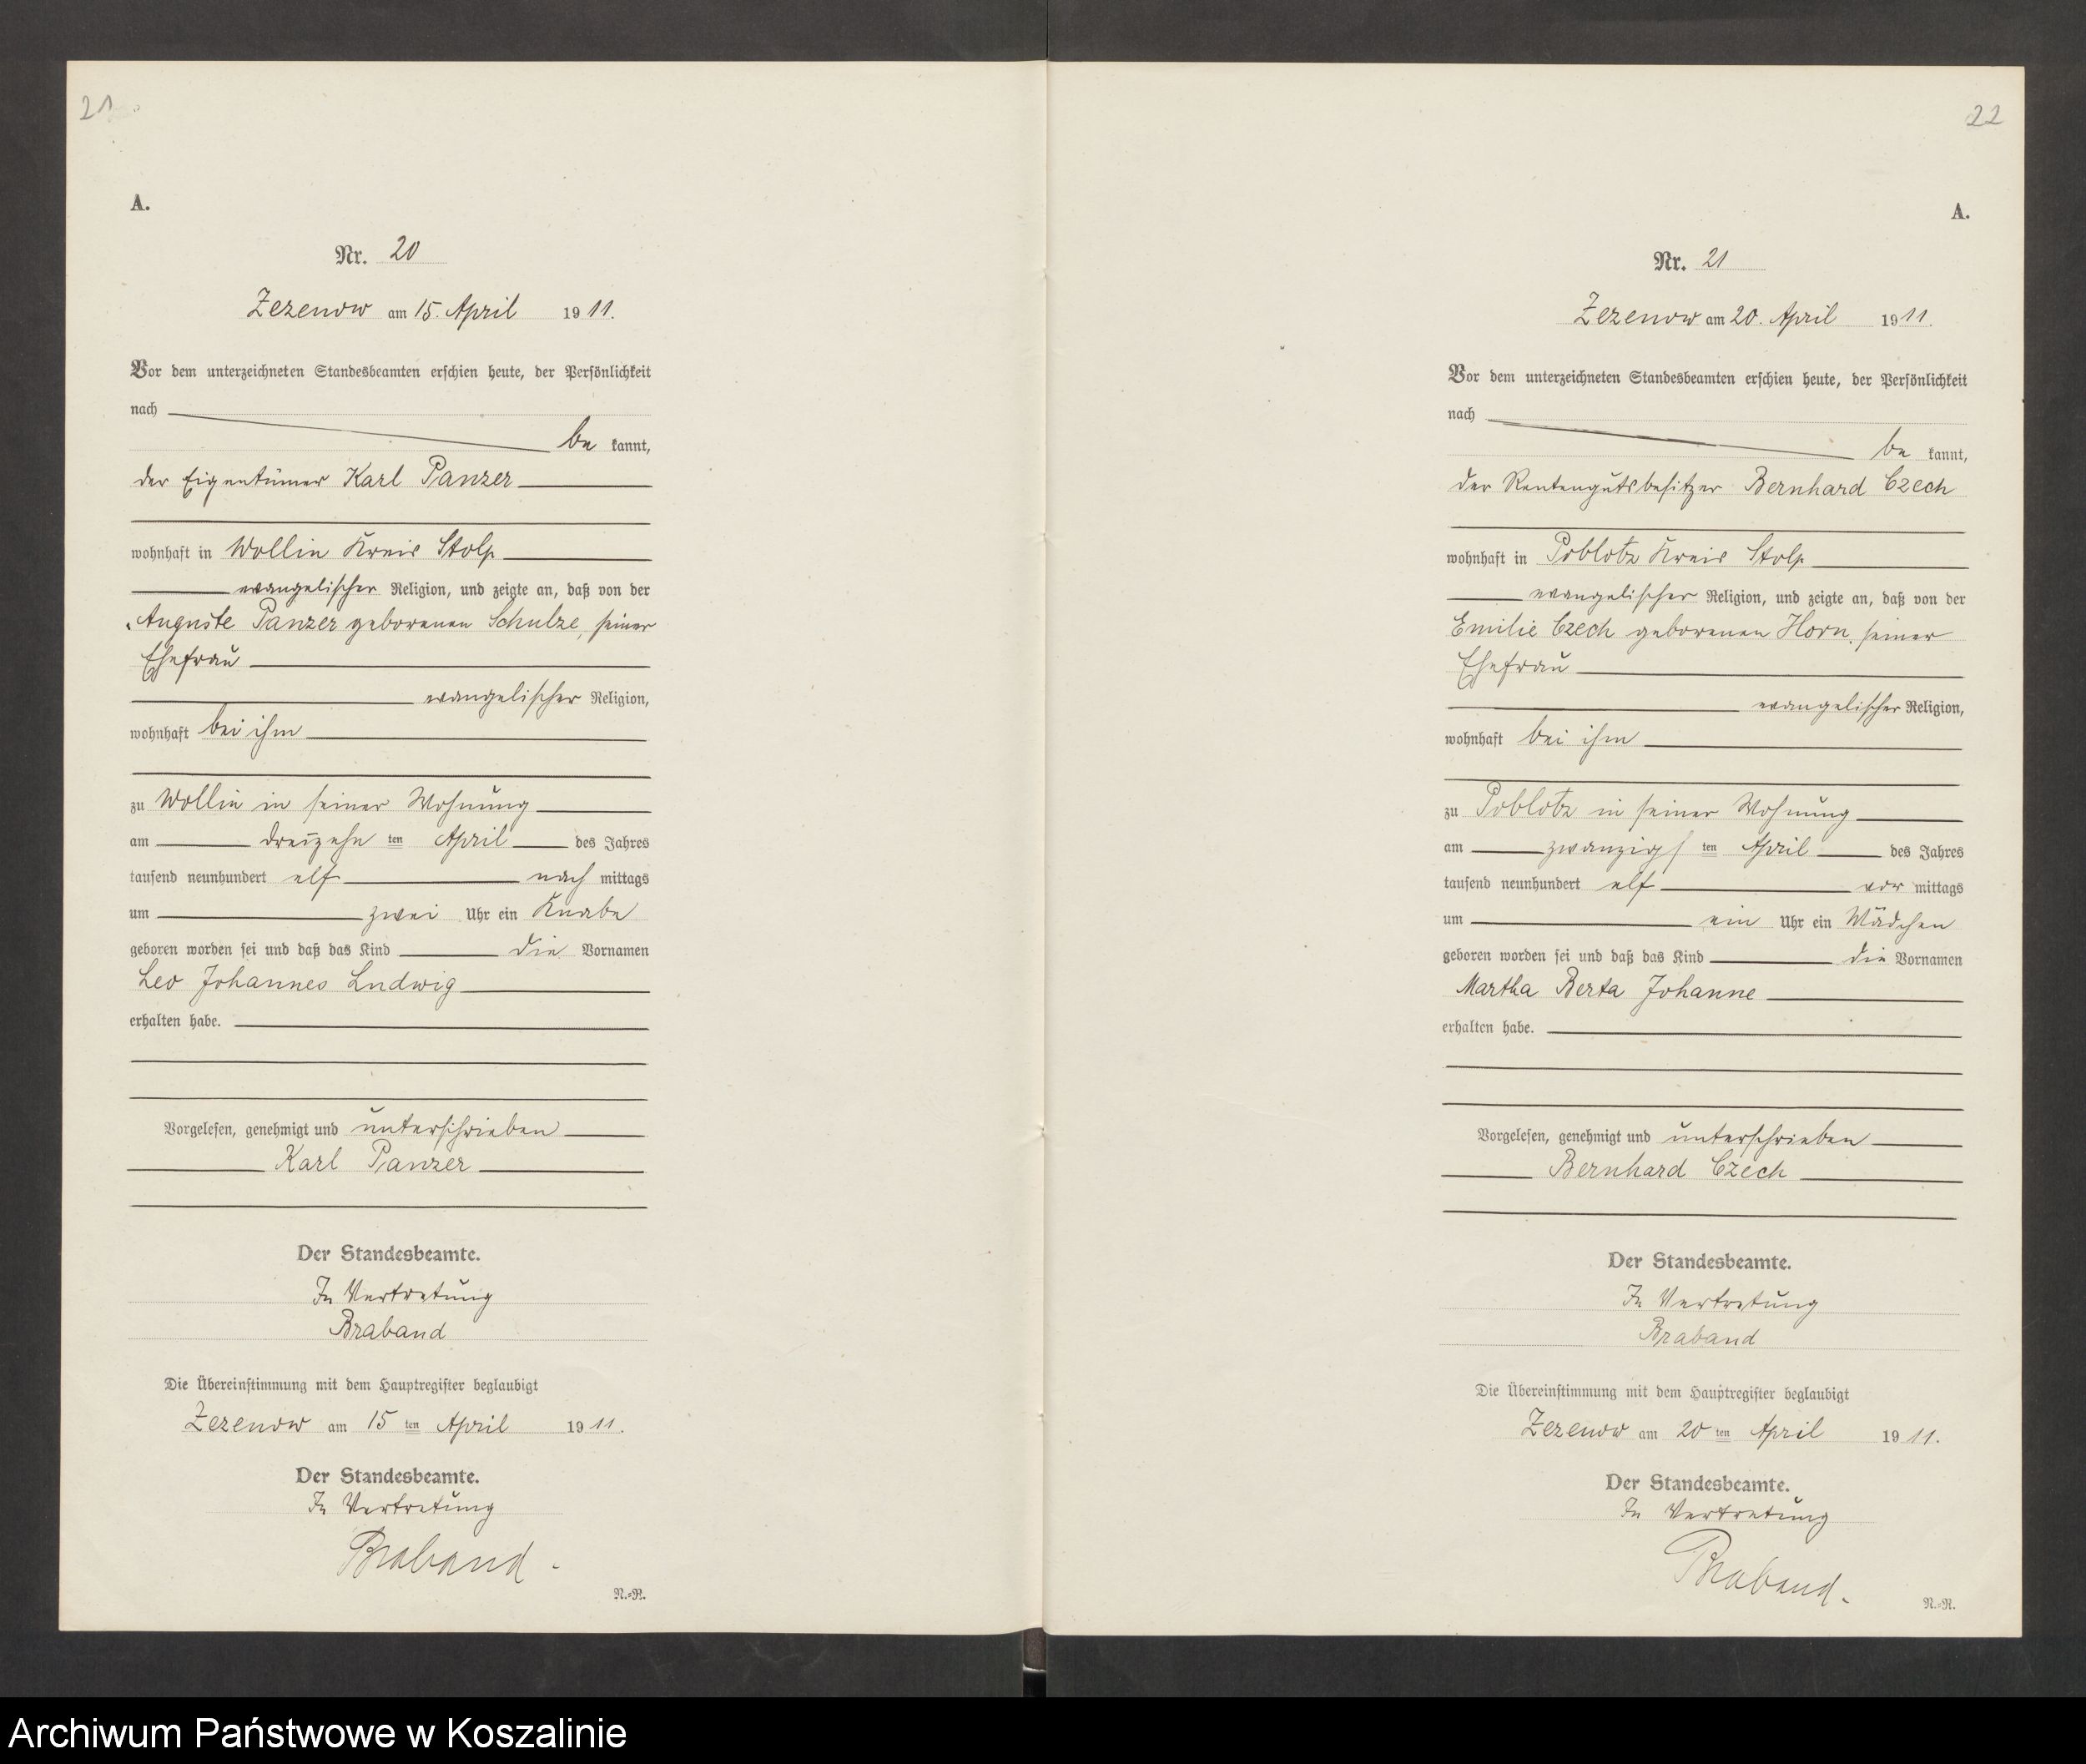 21
A.
Nr. 20
Zezenow am 15. April 1911.
Vor dem unterzeichneten Standesbeamten erschien heute, der Persönlichkeit
nach
be kannt,
der Eigentümer Karl Panzer
wohnhaft in Wollin Kreis Stolp
evangelischer Religion, und zeigte an, daß von der
Auguste Panzer geborenen Schulze, seiner
Ehefrau
evangelischer Religion,
wohnhaft bei ihm
zu Wollin in seiner Wohnung
am dreizehn ten April des Jahres
tausend neunhundert elf nach mittags
um zwei Uhr ein Knabe
geboren worden sei und daß das Kind die Vornamen
Leo Johannes Ludwig
erhalten habe.
Vorgelesen, genehmigt und unterschrieben
Karl Panzer
Der Standesbeamte.
In Vertretung
Braband
Die Übereinstimmung mit dem Hauptregister beglaubigt
Zezenow am 15 ten April 1911.
Der Standesbeamte.
In Vertretung
Braband.
N.=R.
22
A.
Nr. 21
Zezenow am 20. April 1911.
Vor dem unterzeichneten Standesbeamten erschien heute, der Persönlichkeit
nach
be kannt,
der Rentengutsbesitzer Bernhard Czech
wohnhaft in Poblotz Kreis Stolp
evangelischer Religion, und zeigte an, daß von der
Emilie Czech geborenen Horn, seiner
Ehefrau
evangelischer Religion,
wohnhaft bei ihm
zu Poblotz in seiner Wohnung
am zwanzigs ten April des Jahres
tausend neunhundert elf vor mittags
um ein Uhr ein Mädchen
geboren worden sei und daß das Kind die Vornamen
Martha Berta Johanne
erhalten habe.
Vorgelesen, genehmigt und unterschrieben
Bernhard Czech
Der Standesbeamte.
In Vertretung
Braband
Die Übereinstimmung mit dem Hauptregister beglaubigt
Zezenow am 20 ten April 1911.
Der Standesbeamte.
In Vertretung
Braband.
N.=R.
Archiwum Państwowe w Koszalinie